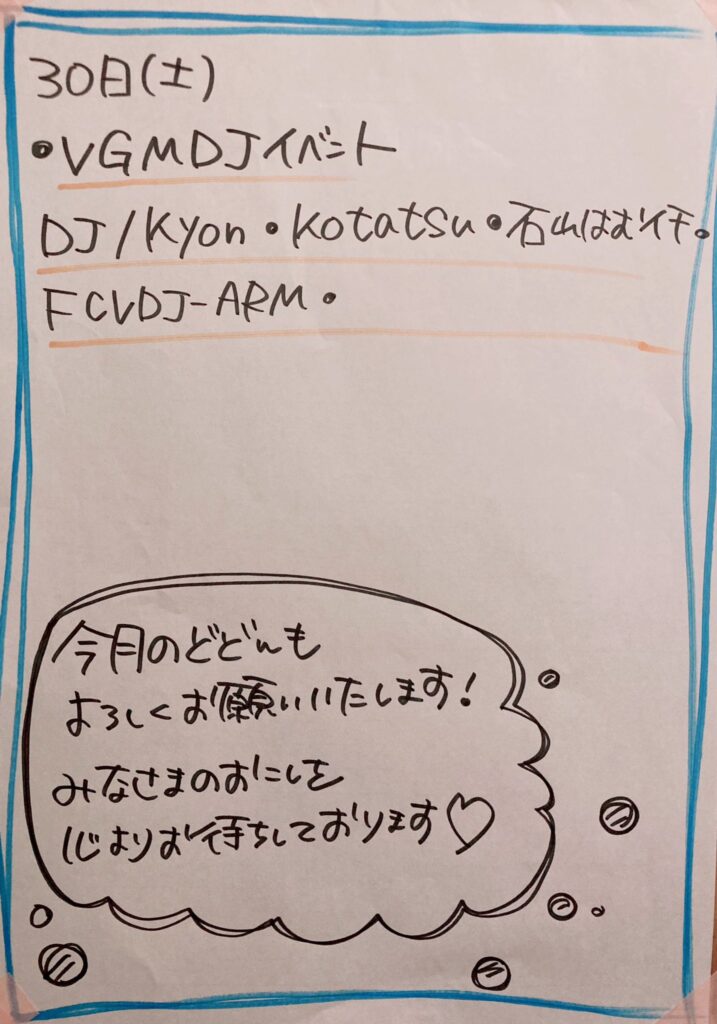 30日(土)
•VGMDJイベント
DJ/Kyon•Kotatsu•石山はむイチ。
FCVDJ-ARM•
今月のどどんも
よろしくお願いいたします!
みなさまのおこしを
心よりお待ちしております♡